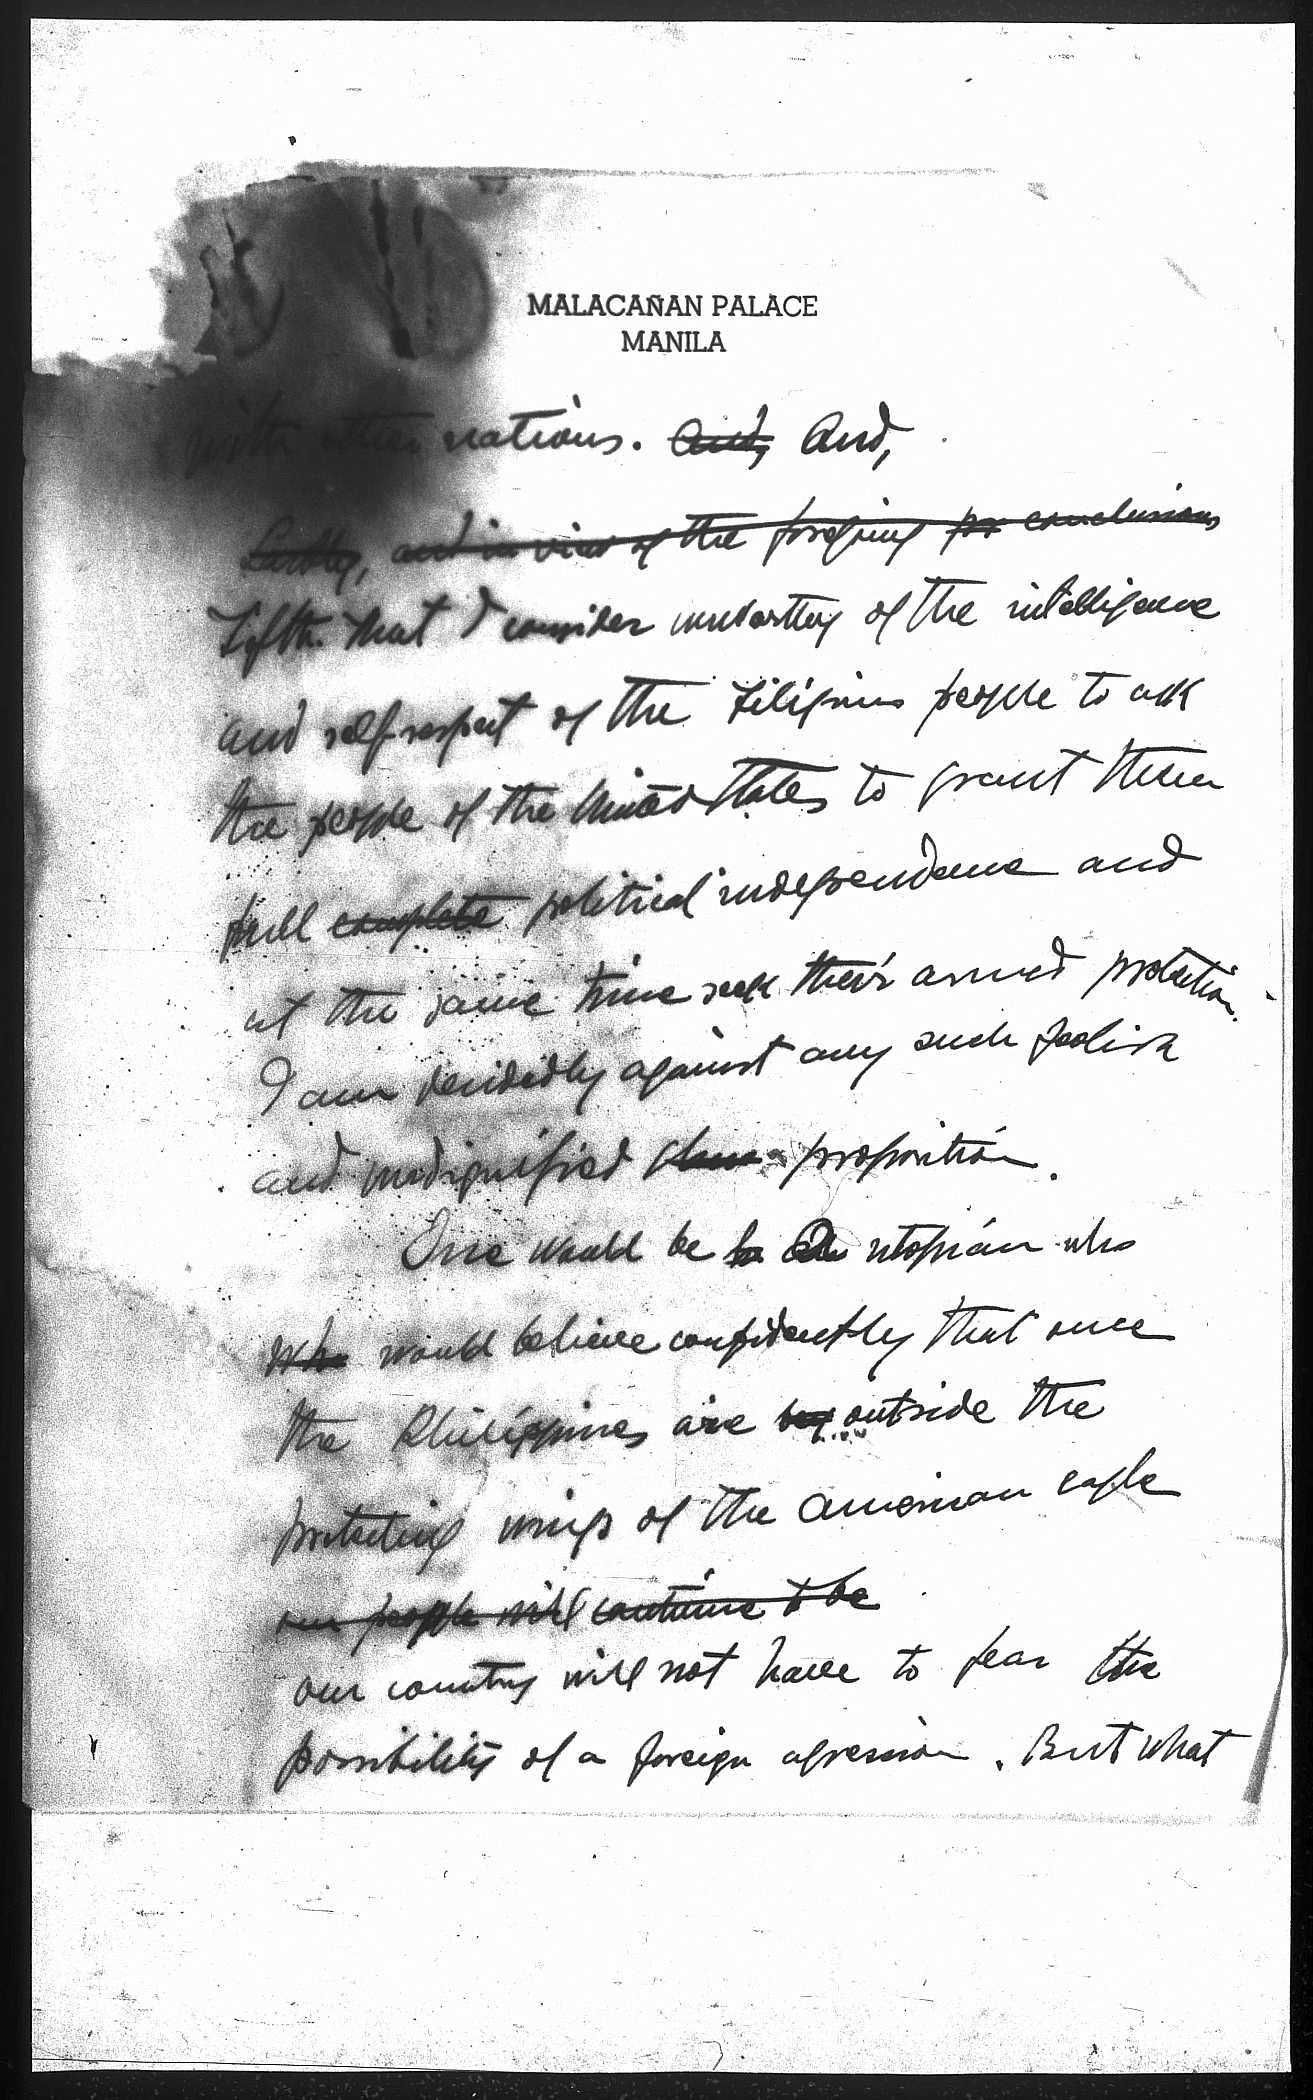 MALACAÑAN PALACE
MANILA
with other nations. And, And,
Lastly, and in view of the foregoing conclusions
Fifth. That I consider unworthy of the intelligence
and self-respect of the Filipino people to ask
the people of the United States to grant them
full complete political independence and
at the same time seek their armed protection.
I am decidedly against any such foolish
and undignified proposition.
One would be utopian who
who would believe confidently that once
the Philippines are outside the
protecting wings of the American eagle
our people will continue to be
our country will not have to fear the
possibility of a foreign agression. But what